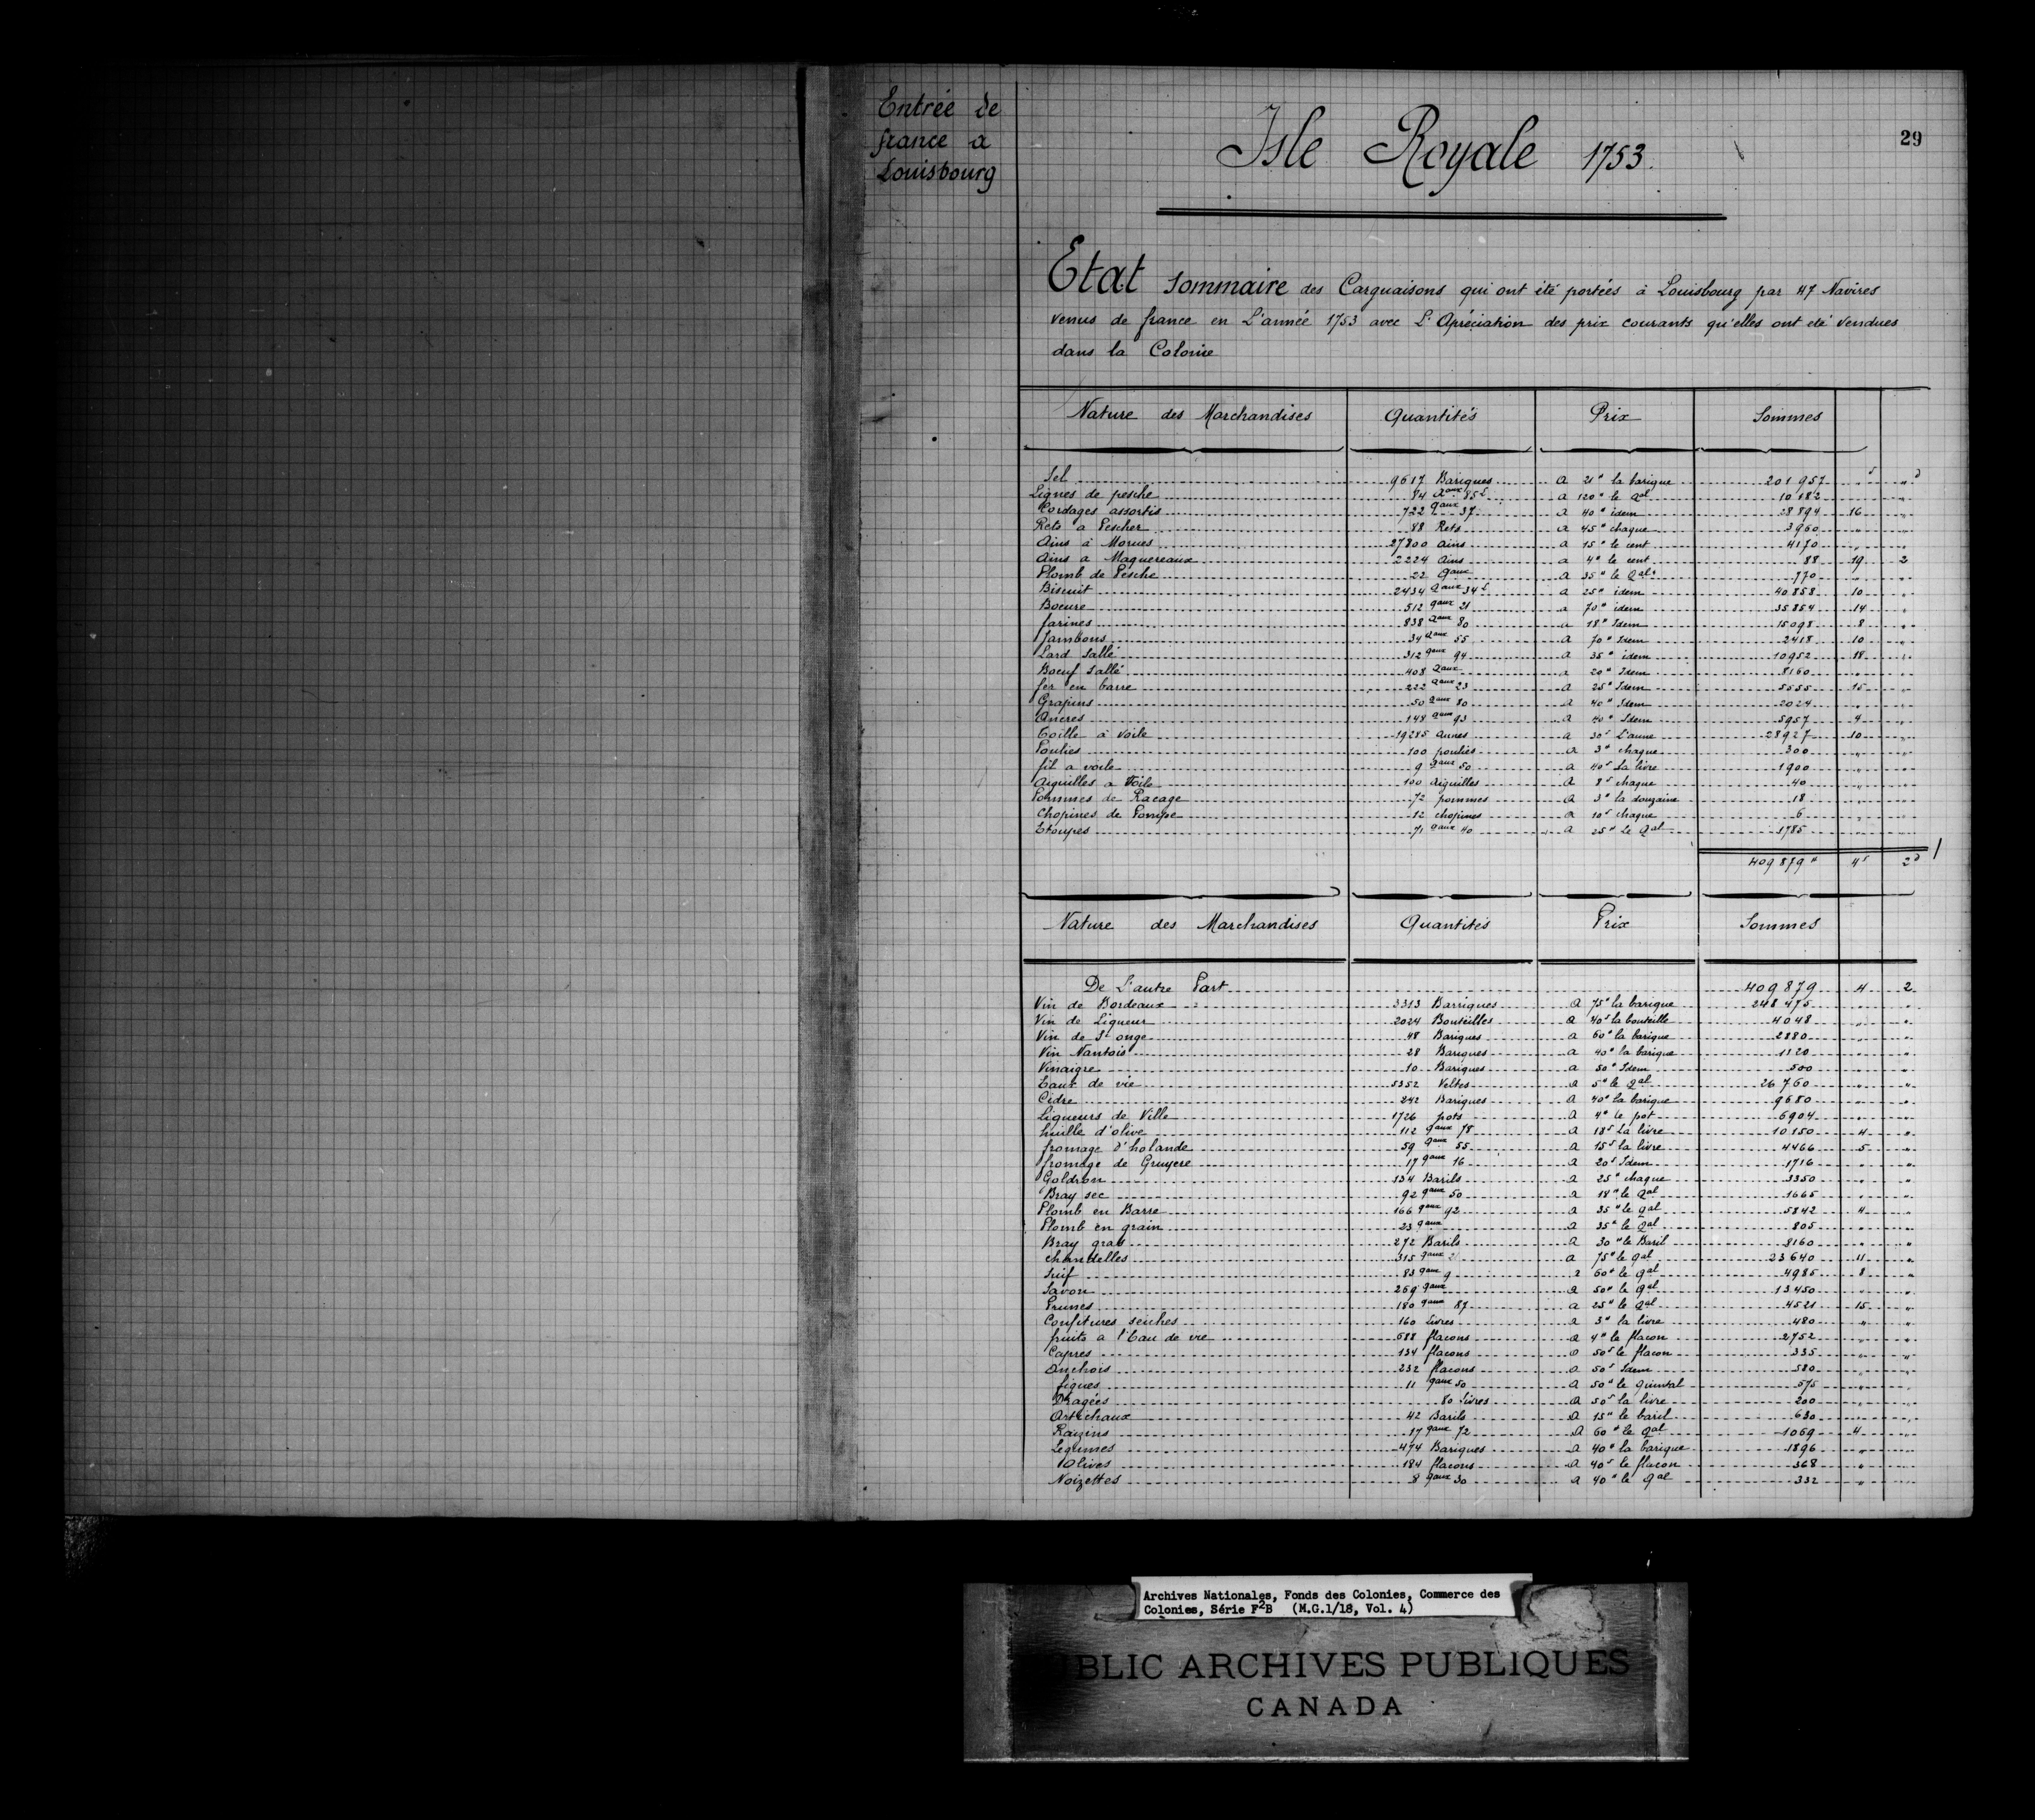 Entrée de
france a
Louisbourg
Isle Royale 1753.
29
Etat Sommaire des Carguaisons qui ont été portées à Louisbourg par 47 Navires
venus de france en L'année 1753 avec L'Apréciation des prix courants qu'elles ont été vendues
dans la Colonie
Nature des Marchandises Quantités Prix Sommes
Sel 9617 Bariques a 21# la barique 201957 s "d
Lignes de pesche 84 Qaux 85 L a 120# le Qal 10182 " "
Cordages assortis 722 Qaux 37 a 40# idem 28894 16 "
Rets a Pescher 88 Rets a 45# chaque 3960 " "
Ains à Morues 27800 ains a 15# le cent 4170 " "
Ains a Maquereaux 2224 Ains a 4# le cent 88 19 2
Plomb de Pesche 22 Qaux a 35# le Qal 770 " "
Biscuit 2434 Qaux 34 L a 25# idem 40858 10 "
Boeure 512 Qaux 21 a 70# idem 35854 14 "
farines 838 Qaux 80 a 18# Idem 15098 8 "
Jambons 34 Qaux 55 a 70# Idem 2418 10 "
Lard Sallé 312 Qaux 94 a 35# idem 10952 18 "
Boeuf Sallé 408 Qaux a 20# Idem 8160 " "
fer en barre 222 Qaux 23 a 25# Idem 5555 15 "
Grapins 50 Qaux 80 a 40# Idem 2024 " "
Ancres 148 Qaux 93 a 40# Idem 5957 4 "
Toille à Voile 19285 aunes a 30s L'aune 28927 10 "
Poulies 100 poulies a 3# chaque 300 " "
fil a voile 9 Qaux 50 a 40s La livre 1900 " "
Aiguilles a Voile 100 aiguilles a 8s chaque 40 " "
Pommes de Racage 72 pommes a 3# la douzaine 18 " "
Chopines de Pompe 12 chopines a 10s chaque 6 " "
Etoupes 71 Qaux 40 a 25# le Qal 1785 " "
409879# 4s 2d
Nature des Marchandises Quantités Prix Sommes
De L'autre Part 409879 4 2
Vin de Bordeaux 3313 Barriques a 75# la barique 248475 " "
Vin de Liqueur 2024 Bouteilles a 40s la bouteille 4048 " "
Vin de St onge 48 Bariques a 60# la barique 2880 " "
Vin Nantois 28 Bariques a 40# la barique 1120 " "
Vinaigre 10 Bariques a 50# Idem 500 " "
Eaux de vie 5352 Veltes a 5# le Qal 26760 " "
Cidre 242 Bariques a 40# la barique 9680 " "
Liqueurs de Ville 1726 pots a 4# le pot 6904 " "
huille d'olive 112 Qaux 78 a 18s La livre 10150 4 "
fromage d'holande 59 Qaux 55 a 15s la livre 4466 5 "
fromage de Gruyere 17 Qaux 16 a 20s Idem 1716 " "
Goldron 134 Barils a 25# chaque 3350 " "
Bray sec 92 Qaux 50 a 18# le Qal 1665 " "
Plomb en Barre 166 Qaux 92 a 35# le Qal 5842 4 "
Plomb en grain 23 Qaux a 35# le Qal 805 " "
Bray gras 272 Barils a 30# le Baril 8160 " "
chandelles 315 Qaux 2 a 75# le Qal 23640 11 "
Suif 83 Qaux 9 a 60# le Qal 4985 8 "
Savon 269 Qaux a 50# le Qal 13450 " "
Prunes 180 Qaux 87 a 25# le Qal 4521 15 "
Confitures seiches 160 Livres a 3# la livre 480 " "
fruits a l'Eau de vie 688 flacons a 4# le flacon 2752 " "
Capres 134 flacons a 50s le flacon 335 " "
Anchois 232 flacons a 50s Idem 580 " "
figues 11 Qaux 50 a 50# le quintal 575 " "
Dragées 80 Livres a 50s la livre 200 " "
Artichaux 42 Barils a 15# le baril 630 " "
Raizins 17 Qaux 72 a 60# le Qal 1069 4 "
Legumes 474 Bariques a 40# la barique 1896 "
Olives 184 flacons a 40s le flacon 368 "
Noizettes 8 Qaux 30 a 40# le Qal 332 "
Archives Nationales, Fonds des Colonies, Commerce des
Colonies, Série F2B (M.G.1/18, Vol. 4)
BLIC ARCHIVES PUBLIQUES
CANADA